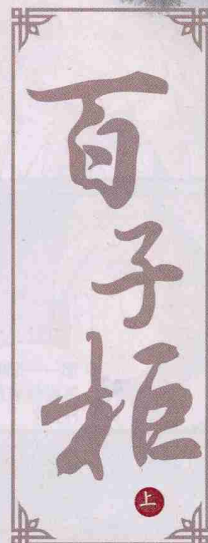 百子柜
上